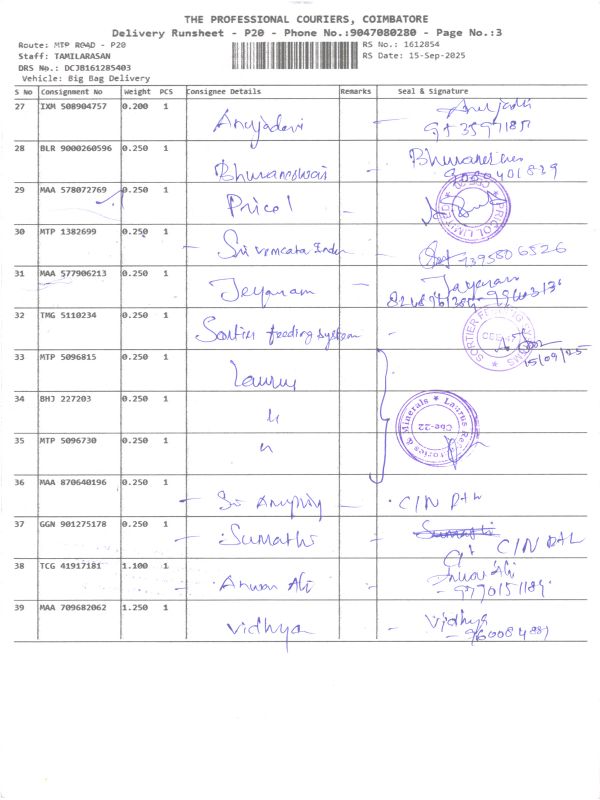 THE PROFESSIONAL COURIERS, COIMBATORE
Delivery Runsheet - P20 - Phone No.:9047080280 - Page No.:3
Route: MTP ROAD - P20 RS No.: 1612854
Staff: TAMILARASAN RS Date: 15-Sep-2025
DRS No.: DCJB161285403
Vehicle: Big Bag Delivery
S No Consignment No Weight PCS Consignee Details Remarks Seal & Signature
27 IXM 508904757 0.200 1 Anujadevi
28 BLR 9000260596 0.250 1 Bhuvaneswari
29 MAA 578072769 0.250 1 Pricol PRICOL LIMITED
30 MTP 1382699 0.250 1 Sri vencata 7395806526
31 MAA 577906213 0.250 1 Jeyaram Jayaram
32 TMG 5110234 0.250 1 Sortier feeding system
15/09/25
33 MTP 5096815 0.250 1
34 BHJ 227203 0.250 1 "
Laurus & Minerals Cbe-22
35 MTP 5096730 0.250 1 "
36 MAA 870640196 0.250 1 C/N D+L
37 GGN 901275178 0.250 1 Sumathi Sumathi
C/N D+L
38 TCG 41917181 1.100 1 Anwar Ali Anwar Ali
39 MAA 709682062 1.250 1 Vidhya Vidhya